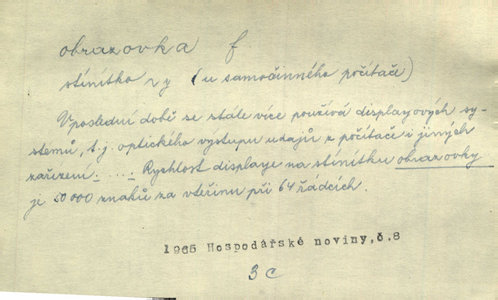 obrazovka f
stínítko z y (u samočinného počítače)
V poslední době se stále více používá displayových sy-
stémů, t.j. optického výstupu udajů z počítače i jiných
zařízení. .... Rychlost displaye na stínítku obrazovky
je 50 000 znaků za vteřinu při 64 řádcích.
1965 Hospodářské noviny,č.8
3 c